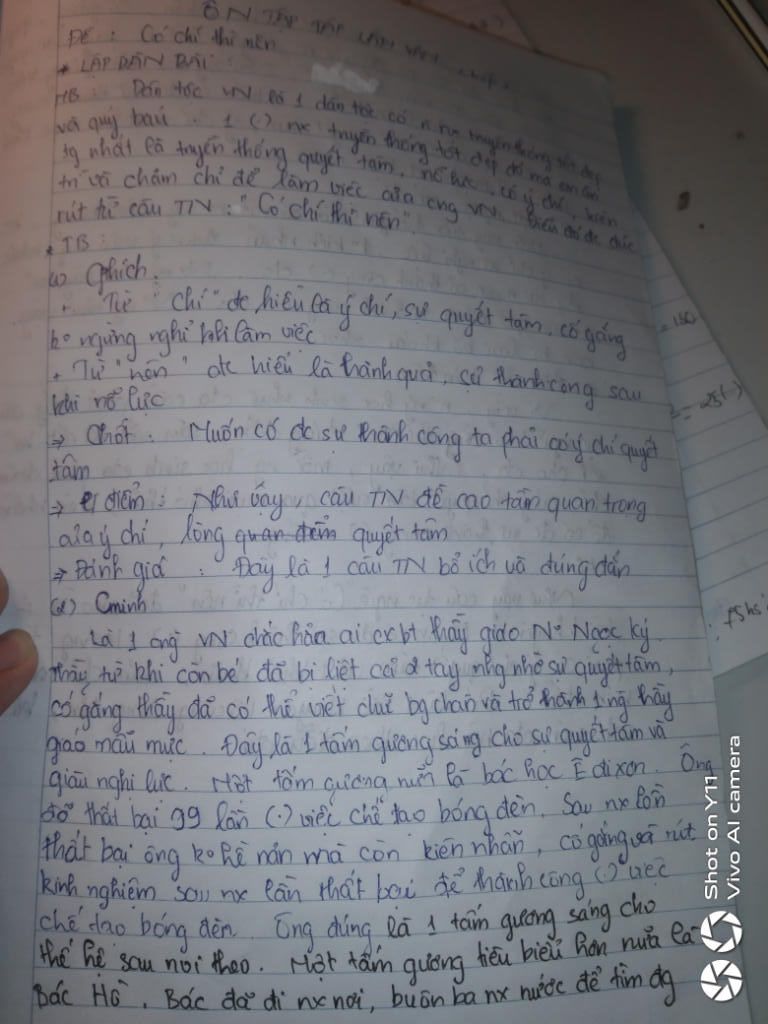 ÔN TẬP TẬP LÀM VĂN
ĐỀ : Có chí thì nên
* LẬP DÀN BÀI :
MB : Dân tộc VN là 1 dân tộc có n truyền thống tốt đẹp
và quý báu . 1 (.) nx truyền thống tốt đẹp đó mà em ấn
tg nhất là truyền thống quyết tâm, nỗ lực, có ý chí, kiên
trì và chăm chỉ để làm việc của cng VN. Điều đó đc đúc
rút từ câu TN : "Có chí thì nên".
* TB :
(1) Gthích.
+ Từ "chí" đc hiểu là ý chí, sự quyết tâm, cố gắng
ko ngừng nghỉ khi làm việc
+ Từ "nên" đc hiểu là thành quả, sự thành công sau
khi nỗ lực
→ Chốt : Muốn có đc sự thành công ta phải có ý chí quyết
tâm
→ điểm : Như vậy, câu TN đề cao tầm quan trọng
của ý chí, lòng quan điểm quyết tâm
→ Đánh giá : Đây là 1 câu TN bổ ích và đúng đắn
(2) Cminh
Là 1 cng VN chắc hẳn ai cx bt thầy giáo Ng Ngọc Ký.
Thầy từ khi còn bé đã bị liệt cả 2 tay nhg nhờ sự quyết tâm,
cố gắng thầy đã có thể viết chữ bg chân và trở thành 1 ng thầy
giáo mẫu mực. Đây là 1 tấm gương sáng cho sự quyết tâm và
giàu nghị lực. Một tấm gương nữa là bác học Ê đi xơn. Ông
đã thất bại 99 lần (.) việc chế tạo bóng đèn. Sau nx lần
thất bại ông ko hề nản mà còn kiên nhẫn, cố gắng và rút
kinh nghiệm sau nx lần thất bại để thành công (.) việc
chế tạo bóng đèn. Ông đúng là 1 tấm gương sáng cho
thế hệ sau noi theo. Một tấm gương tiêu biểu hơn nữa là
Bác Hồ. Bác đã đi nx nơi, buôn ba nx nước để tìm đg
Shot on Y11
Vivo AI camera